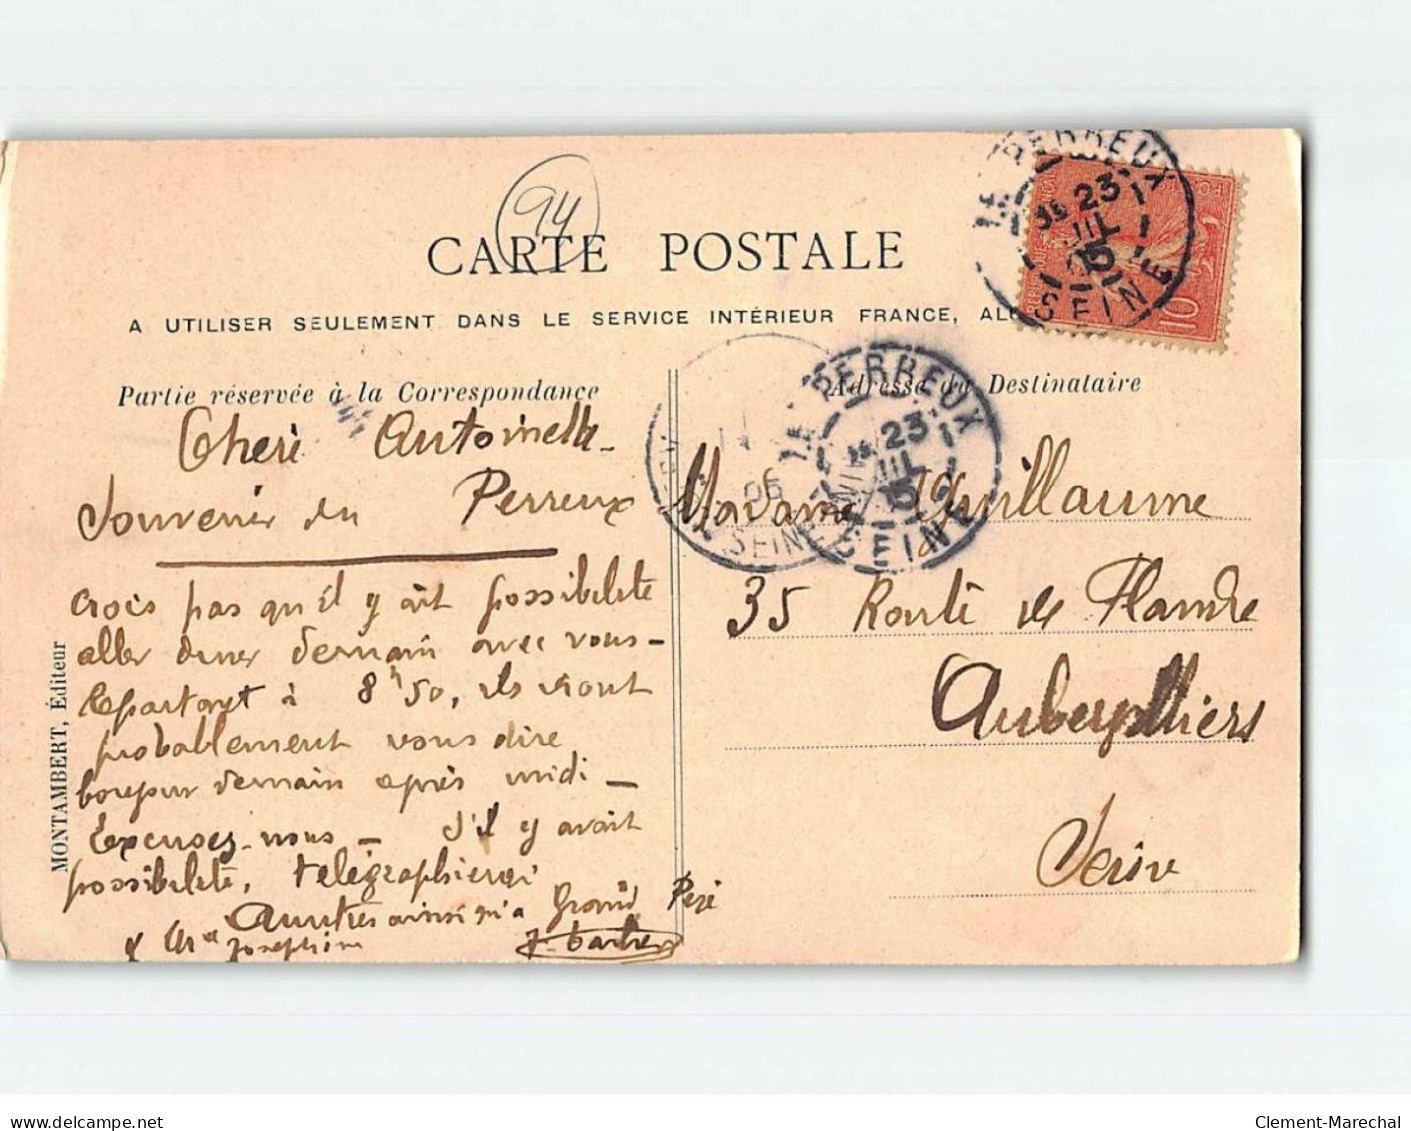 94
CARTE POSTALE
A UTILISER SEULEMENT DANS LE SERVICE INTÉRIEUR FRANCE,
Partie réservée à la Correspondance
Adresse du Destinataire
LE PERREUX
23
JUIL
05
SEINE
10
LE PERREUX
23
JUIL
05
SEINE
05
SEINE
Cheri Antoinette
Souvenir du Perreux
crois pas qu'il y ait possibilité
aller diner demain avec vous –
Repartant à 8h50, ils iront
probablement vous dire
bonjour demain après midi –
Excusez-nous – S'il y avait
possibilité, télégraphierai
ainsi qu'a Grand Père
& Me Josephine
J. Barbier
Madame Guillaume
35 Route de Flandre
Aubervilliers
Seine
MONTAMBERT, Éditeur
www.delcampe.net
Clement-Marechal